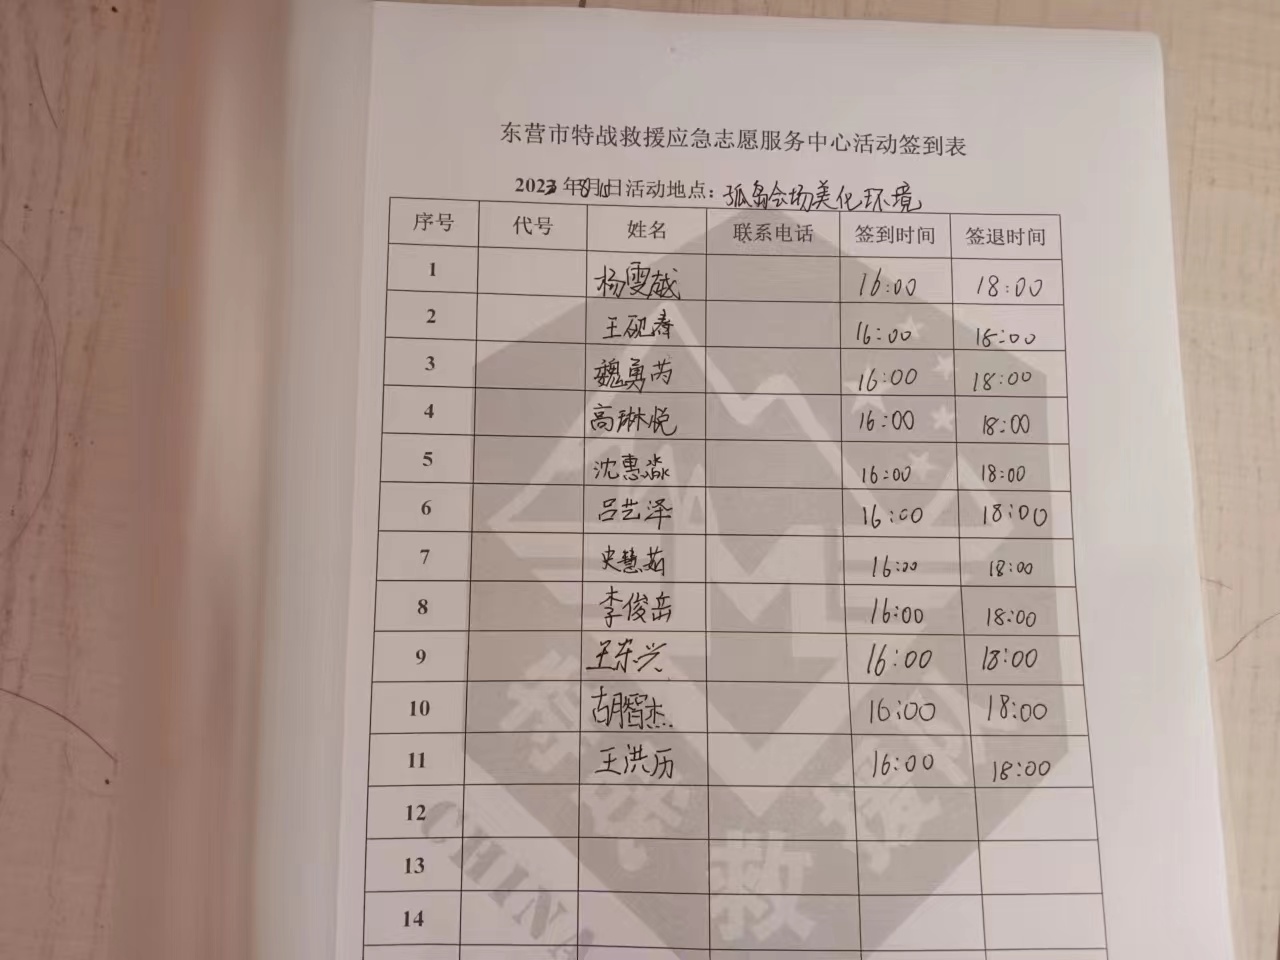 东营市特战救援应急志愿服务中心活动签到表
2023年8月15日活动地点：孤岛会场美化环境
序号 代号 姓名 联系电话 签到时间 签退时间
1 杨雯越 16:00 18:00
2 王砚春 16:00 18:00
3 魏勇芮 16:00 18:00
4 高琳悦 16:00 18:00
5 沈惠淼 16:00 18:00
6 吕艺泽 16:00 18:00
7 史慧茹 16:00 18:00
8 李俊岳 16:00 18:00
9 王东兴 16:00 18:00
10 胡智杰 16:00 18:00
11 王洪历 16:00 18:00
12
13
14
特战救援队
CHINA